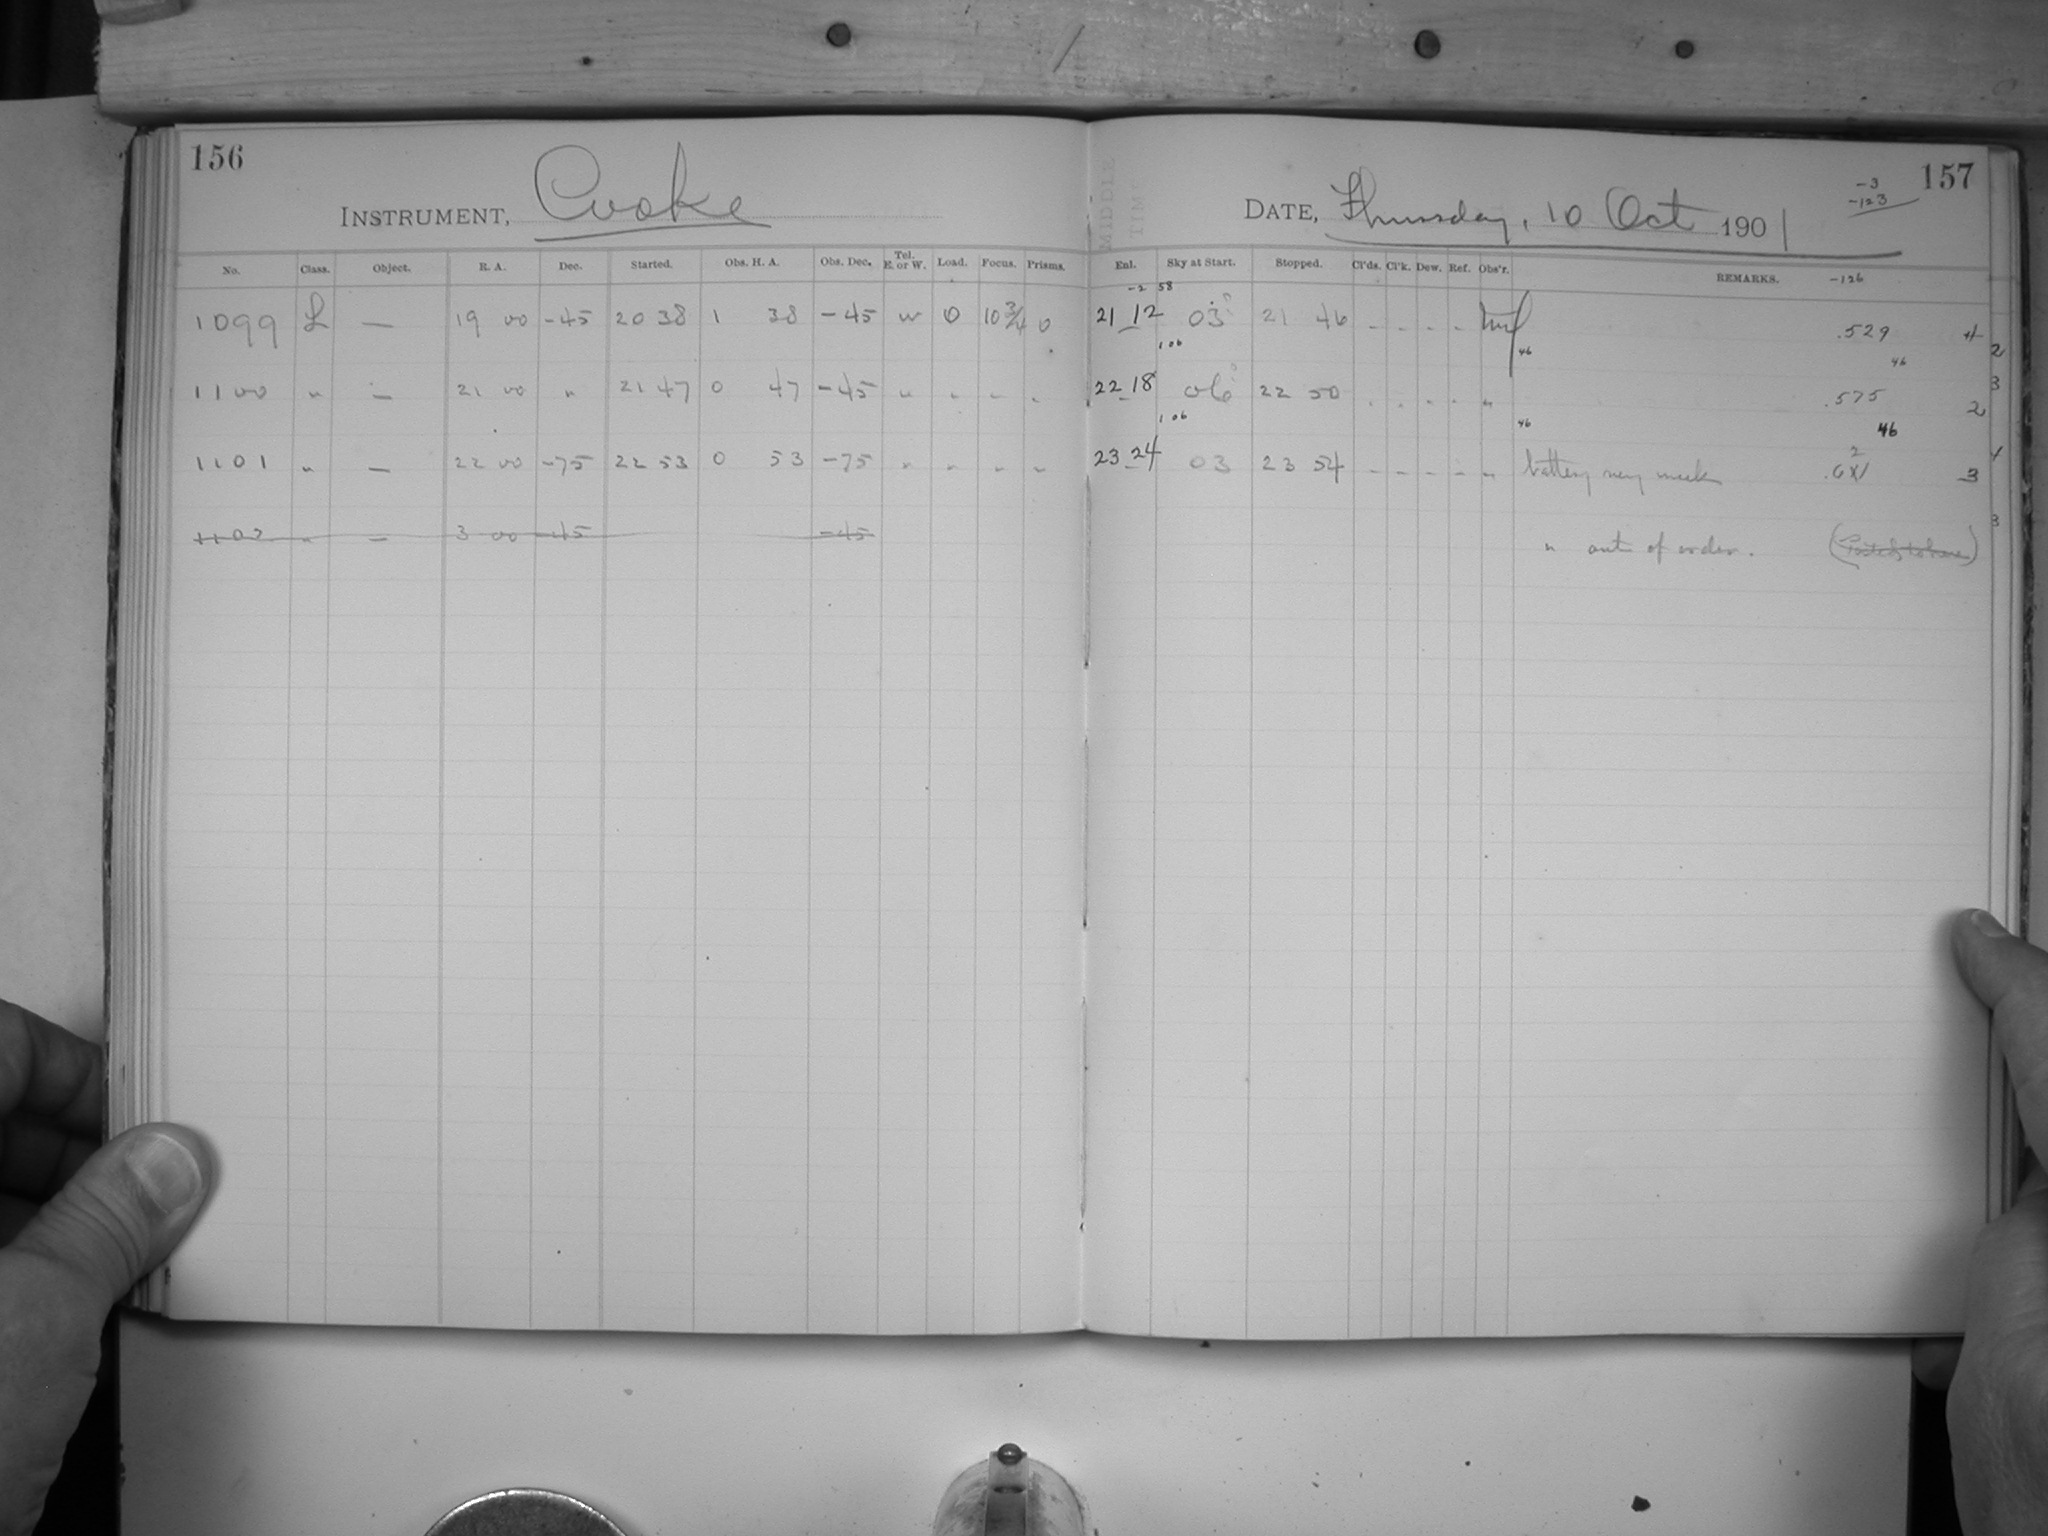 156
INSTRUMENT, Cooke
No. Class. Object. R. A. Dec. Started. Obs. H. A. Obs. Dec. Tel. E. or W. Load. Focus. Prisms.
1099 L — 19 00 -45 20 38 1 38 -45 W 0 10 3/4 0
1100 " — 21 00 " 21 47 0 47 -45 " " " "
1101 " — 22 00 -75 22 53 0 53 -75 " " " "
1102 " — 3 00 -45 -45
157
-3
-123
DATE, Thursday, 10 Oct 1901
MIDDLE
TIME
Enl. Sky at Start. Stopped. Cl'ds. Cl'k. Dew. Ref. Obs'r. REMARKS. -126
-2 58
21 12 03 21 46 - - - - .529 4
1 06 46 46
22 18 06 22 50 . . . . " .575 2
1 06 46 46
23 24 03 23 54 - - - - " battery very weak 3
" out of order.